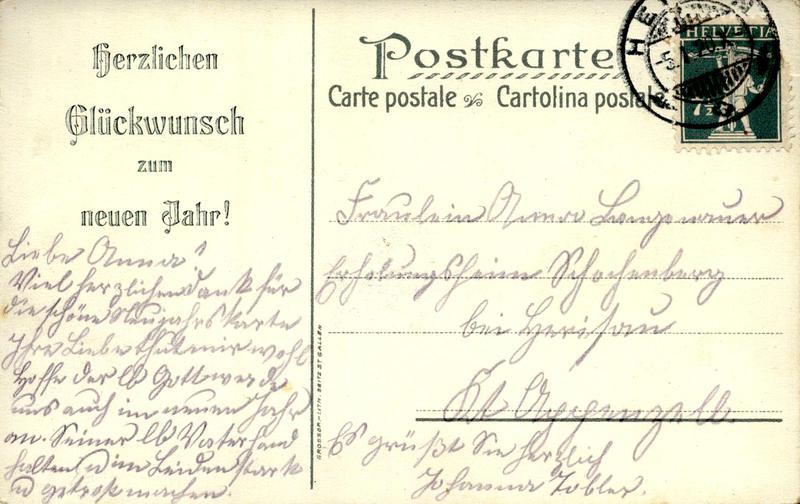 Herzlichen
Glückwunsch
zum
neuen Jahr!
Liebe Anna!
Viel herzlichen dank für
die schöne Neujahrskarte
Ihre Liebe thut mir wohl
Hoffe der lb Gott werde
uns auch im neuen Jahr
an Seiner lb Vaterhand
halten u im Leiden stark
u getrost machen.
Postkarte
Carte postale Cartolina postale
HELVETIA
7½
Fräulein Anna Langenauer
Erholungsheim Schochenberg
bei Herisau
Kt Appenzell.
Es grüßt Sie herzlich
Johanna Tobler.
GROSSBR.-LITH. SEITZ ST. GALLEN